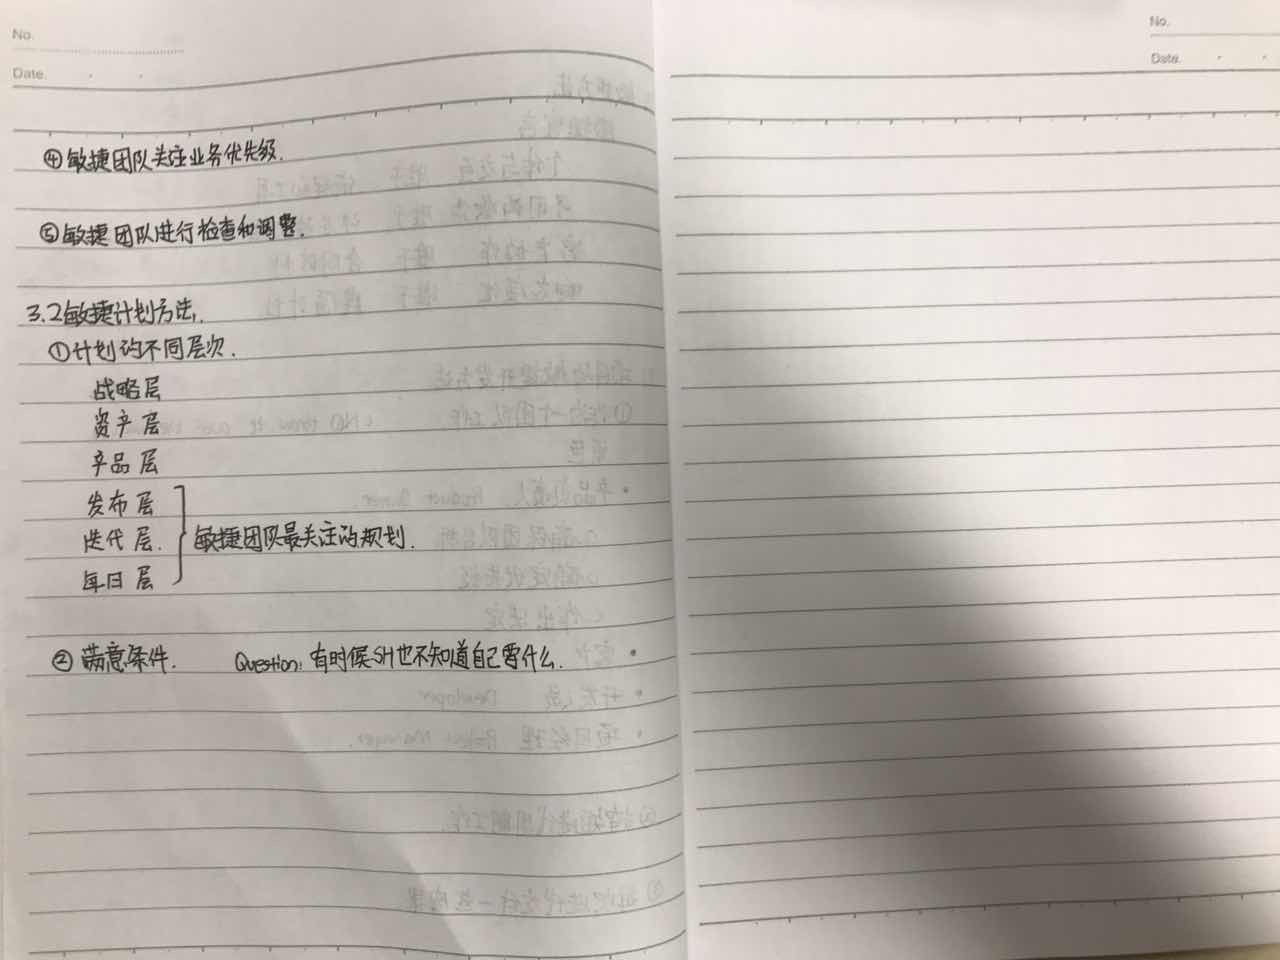 No.
Date.
④敏捷团队关注业务优先级.
⑤敏捷团队进行检查和调整.
3.2敏捷计划方法.
①计划的不同层次.
战略层
资产层
产品层
发布层
迭代层.
每日层
敏捷团队最关注的规划.
②满意条件. Question: 有时候SH也不知道自己要什么.
No.
Date.